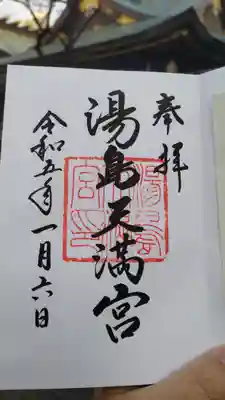 奉拝
湯島天満宮
令和五年一月六日